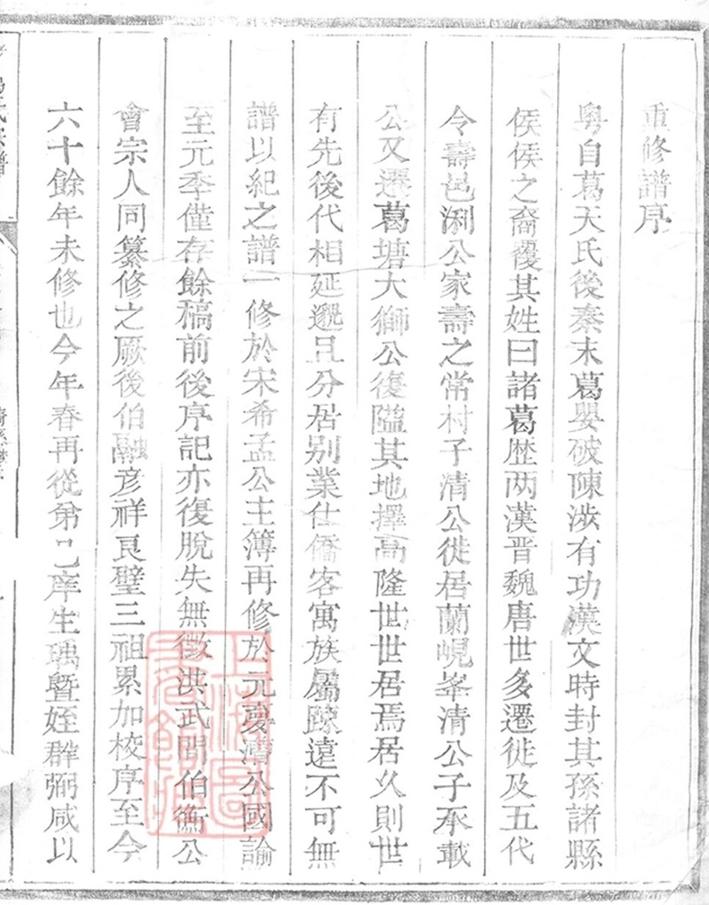 重修譜序
粵自葛天氏後秦末葛嬰破陳涉有功漢文時封其孫諸縣
侯侯之裔覆其姓曰諸葛歷两漢晋魏唐世多遷徙及五代
令壽邑渕公家壽之常村子清公徙居蘭峴峯清公子承載
公又遷葛塘大獅公復隘其地擇高隆世世居焉居久則世
有先後代相延邈且分居别業仕僑客寓族屬踈遠不可無
譜以紀之譜一修於宋希孟公主簿再修於元慶清公國諭
至元季僅存餘稿前後序記亦復脫失無徵洪武間伯衡公
會宗人同纂修之厥後伯融彦祥良璧三祖累加校序至今
六十餘年未修也今年春再從弟庠生瑀暨姪群弼咸以
葛氏宗譜